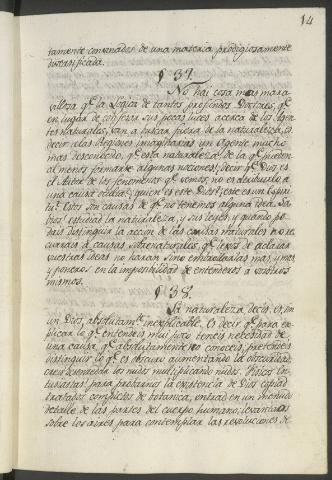 14
tamente convinados de una materia prodigiosamente
diversificada.
§ 37.
No hai cosa mas mara-
villosa q.e la Logica de tantos profundos Doctores, q.e
en lugar de confesar sus pocas luces acerca de los Agen-
tes Naturales, van a buscar fuera de la naturaleza, es
decir a las Regiones imaginarias un Agente mucho
mas desconocido, q.e esta naturaleza, de la q.e pueden
al menos formarse algunas nociones! decir q.e Dios es
el Autor de los fenomenos q.e vemos, no es atribuirlo a
una causa oculta? quien es este Dios? este es un Espiri-
tu? Estas son causas de q.e no tenemos alguna idea. Sa-
bios! estudiad la naturaleza, y sus leyes, y quando po-
dais distinguir la accion de las causas naturales no re-
currais a causas sobrenaturales, q.e lexos de aclarar
vuestras ideas no haran sino embrollarlas mas, y mas,
y poneros en la imposibilidad de entenderos a vosotros
mismos.
§ 38.
La naturaleza, decis, es, sin
un Dios, absolutam.te inexplicable. Es decir q.e para ex-
plicar lo q.e entendeis mui poco teneis necesidad de
una causa, q.e absolutamente no conoceis, pretendeis
distinguir lo q.e es obscuro aumentando la obscuridad,
creis desenredar los nudos multiplicando nudos. Fisicos En-
tusiastas! para probarnos la existencia de Dios copiad
tratados completos de botanica, entrad en un menudo
detalle de las partes del cuerpo humano; levantaos
sobre los aires para contemplar las revoluciones de